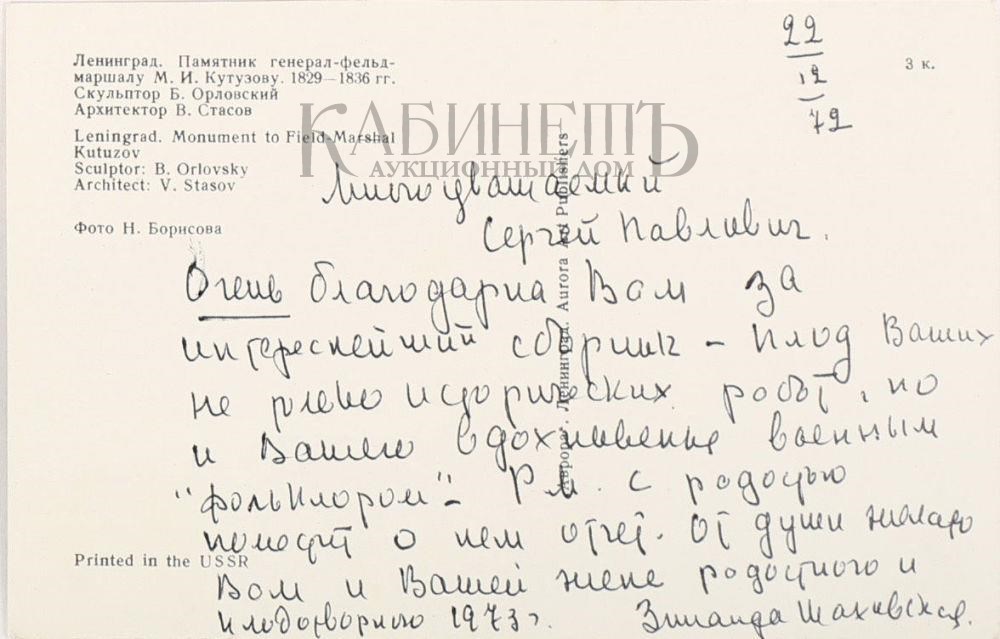 Ленинград. Памятник генерал-фельд-
маршалу М. И. Кутузову. 1829—1836 гг.
Скульптор Б. Орловский
Архитектор В. Стасов
Leningrad. Monument to Field-Marshal
Kutuzov
Sculptor: B. Orlovsky
Architect: V. Stasov
Фото Н. Борисова
22
12
72
3 к.
КАБИНЕТЪ
АУКЦИОННЫЙ ДОМ
Многоуважаемый
Сергей Павлович.
Очень благодарна Вам за
интереснейший сборник – плод Ваших
не исторических работ, но
и Вашего вдохновенья военным
"фольклором" – с радостью
о нем отчет. От души желаю
Вам и Вашей жене радостного и
плодотворного 1973 г.
Зинаида Шаховская.
„Аврора“. Ленинград. Aurora Art Publishers
Printed in the USSR